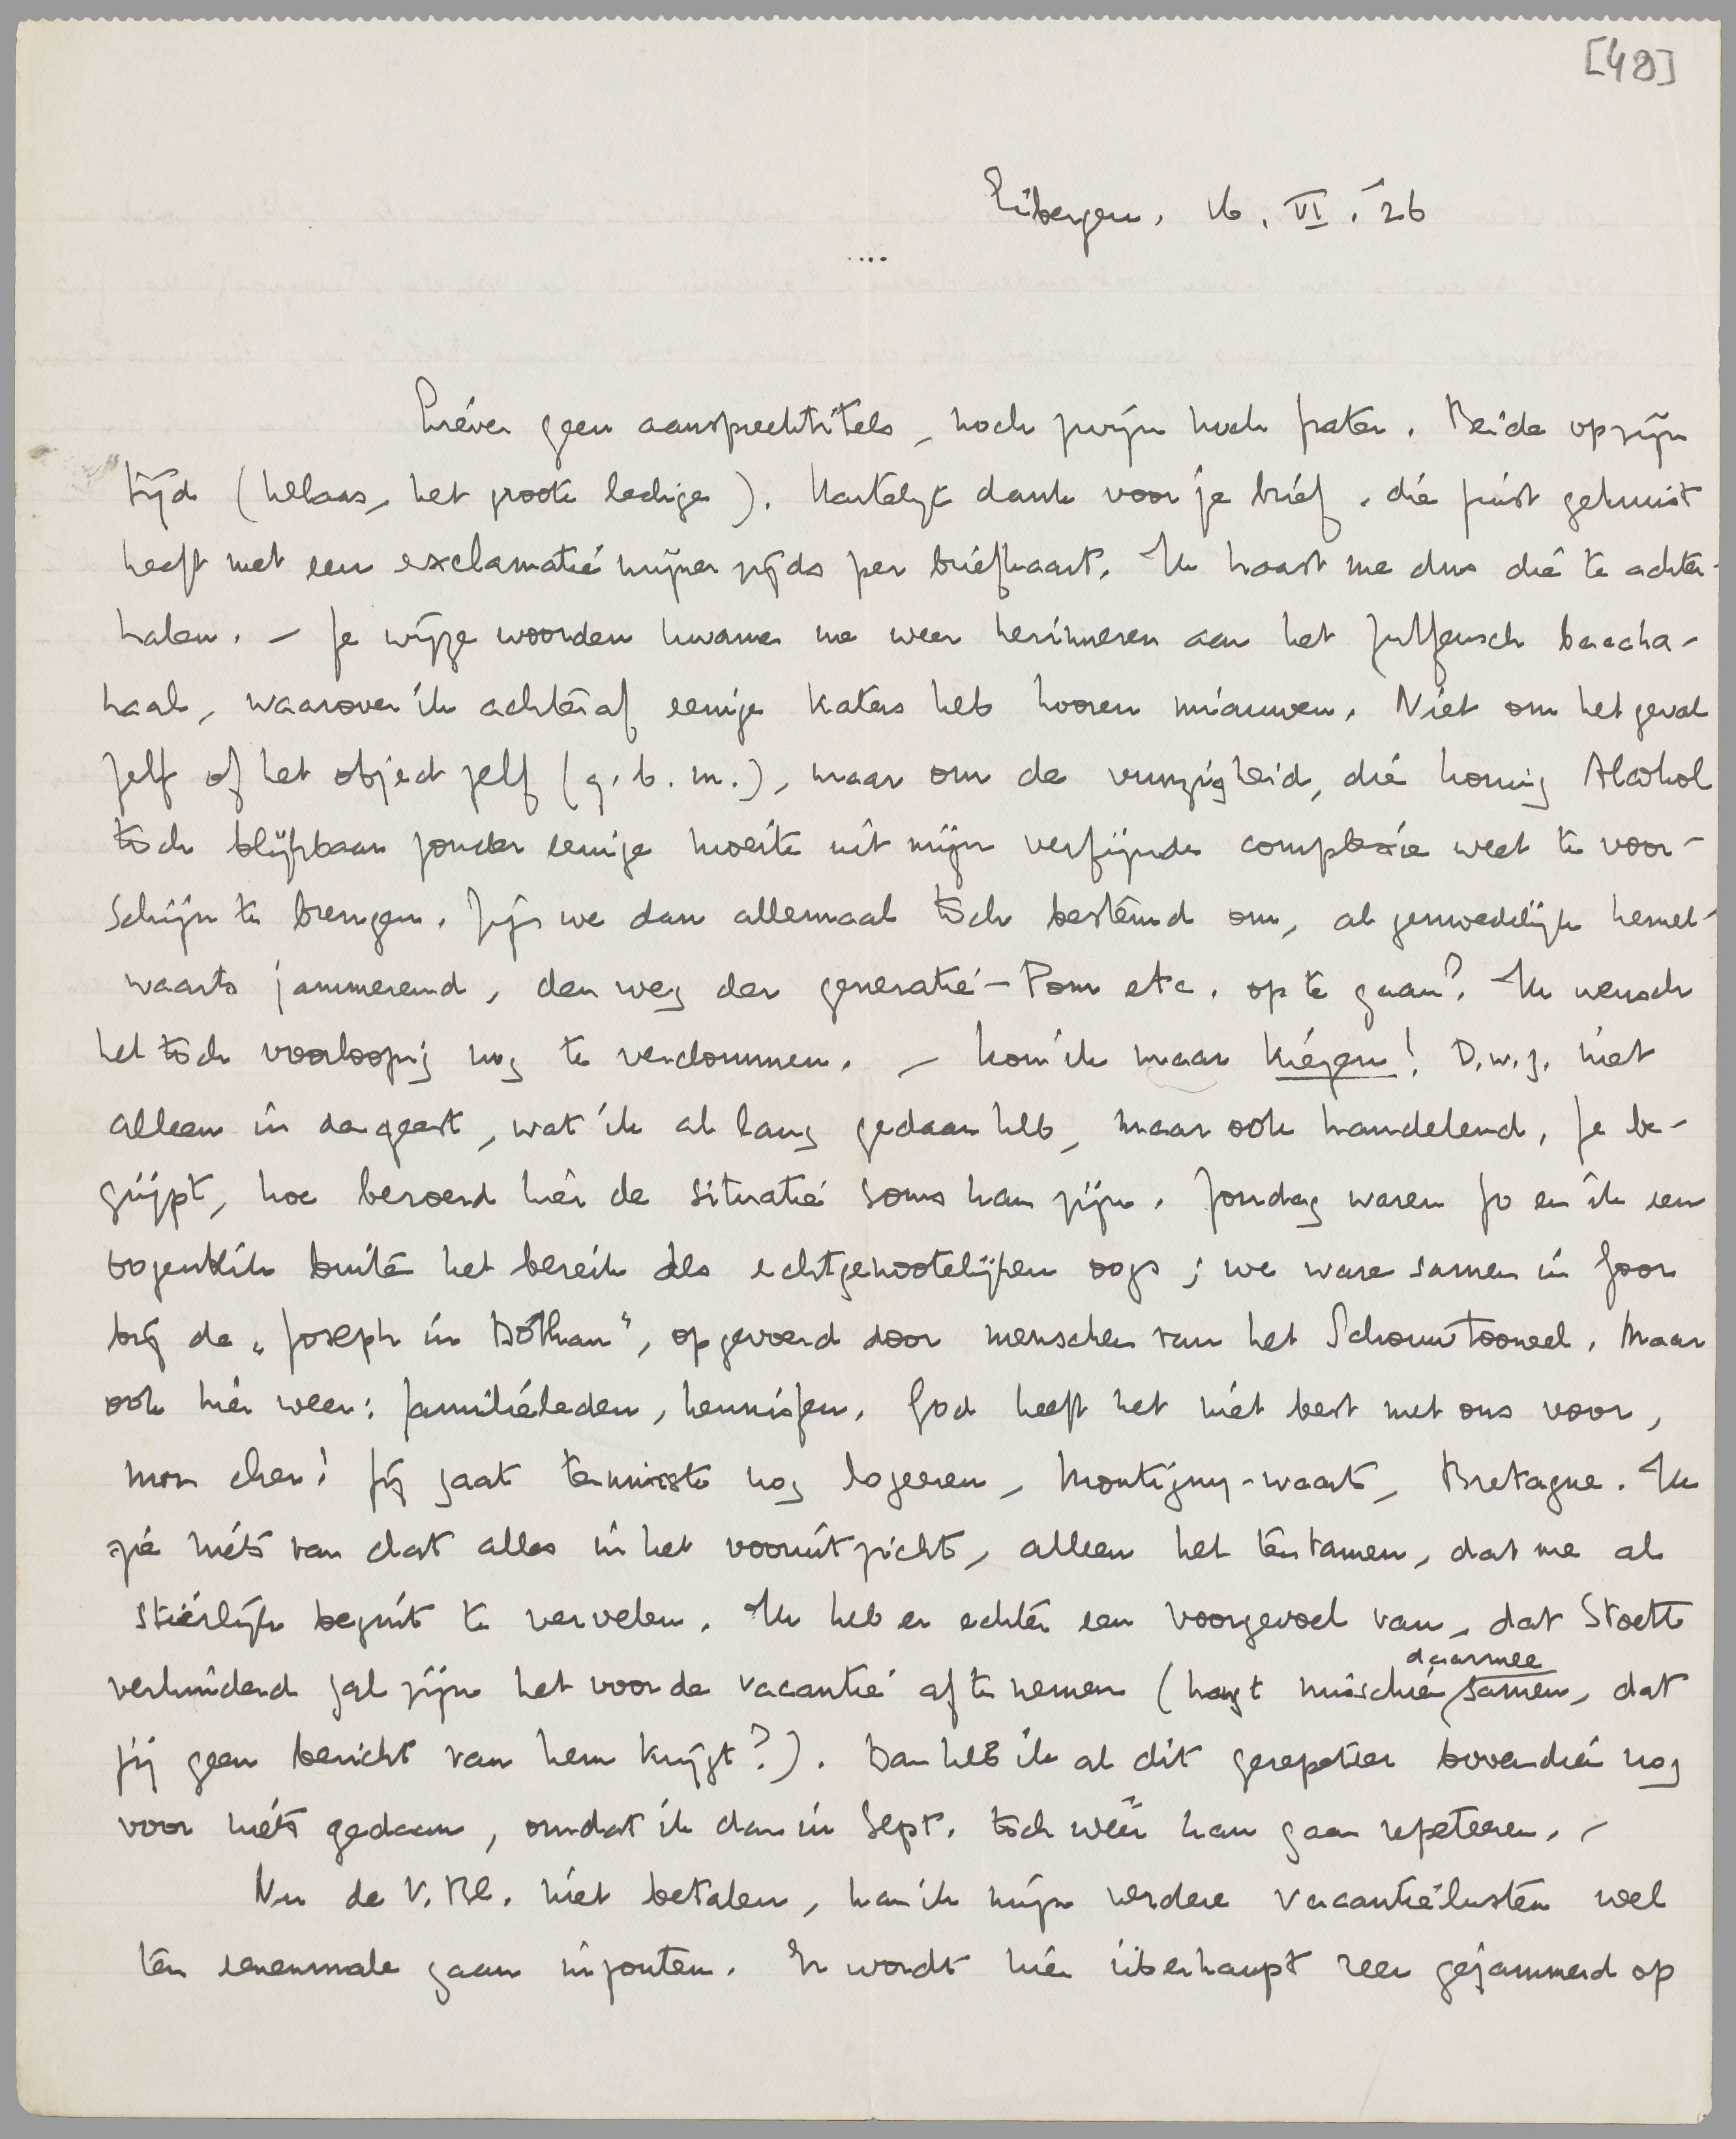 [48]
Eibergen, 16. VI. '26
....
Liever geen aanspreektitels, noch zwijn noch frater. Beide op zijn
tijd (helaas, het groote ledige). Hartelijk dank voor je brief, die juist gekruist
heeft met een exclamatie mijner zijds per briefkaart. Ik haast me dus die te achter-
halen. – Je wijze woorden kwamen me weer herinneren aan het Zutfensch baccha-
naal, waarover ik achteraf eenige katers heb hooren miauwen. Niet om het geval
zelf of het object zelf (q.b.m.), maar om de vunzigheid, die koning Alcohol
toch blijkbaar zonder eenige moeite uit mijn verfijnde complexie weet te voor-
schijn te brengen. Zijn we dan allemaal toch bestemd om, al genoedelijk hemel-
waarts jammerend, den weg der generatie-Pom etc. op te gaan? Ik wensch
het toch voorloopig nog te verdommen. – Kon ik maar kiezen! D.w.z. niet
alleen in de geest, wat ik al lang gedaan heb, maar ook handelend. Je be-
grijpt, hoe beroerd hier de situatie soms kan zijn. Zondag waren Jo en ik een
oogenblik buiten het bereik des echtgenootelijken oogs; we waren samen in Goor
bij de „Joseph in Dothan", opgevoerd door menschen van het Schouwtooneel. Maar
ook hier weer: familieleden, kennissen. God heeft het niet best met ons voor,
mon cher! Jij gaat tenminste nog logeeren, Montigny-waarts, Bretagne. Ik
zie niets van dat alles in het vooruitzicht, alleen het tentamen, dat me al
stierlijk begint te vervelen. Ik heb er echter een voorgevoel van, dat Stoett
verhinderd zal zijn het voor de vacantie af te nemen (hangt misschien daarmee samen, dat
jij geen bericht van hem krijgt?). Dan heb ik al dit gerepetier bovendien nog
voor niets gedaan, omdat ik dan in Sept. toch weer kan gaan repeteeren. –
Nu de V.Bl. niet betalen, kan ik mijn verdere vacantielusten wel
ten eenenmale gaan inzouten. Er wordt hier überhaupt zeer gejammerd op